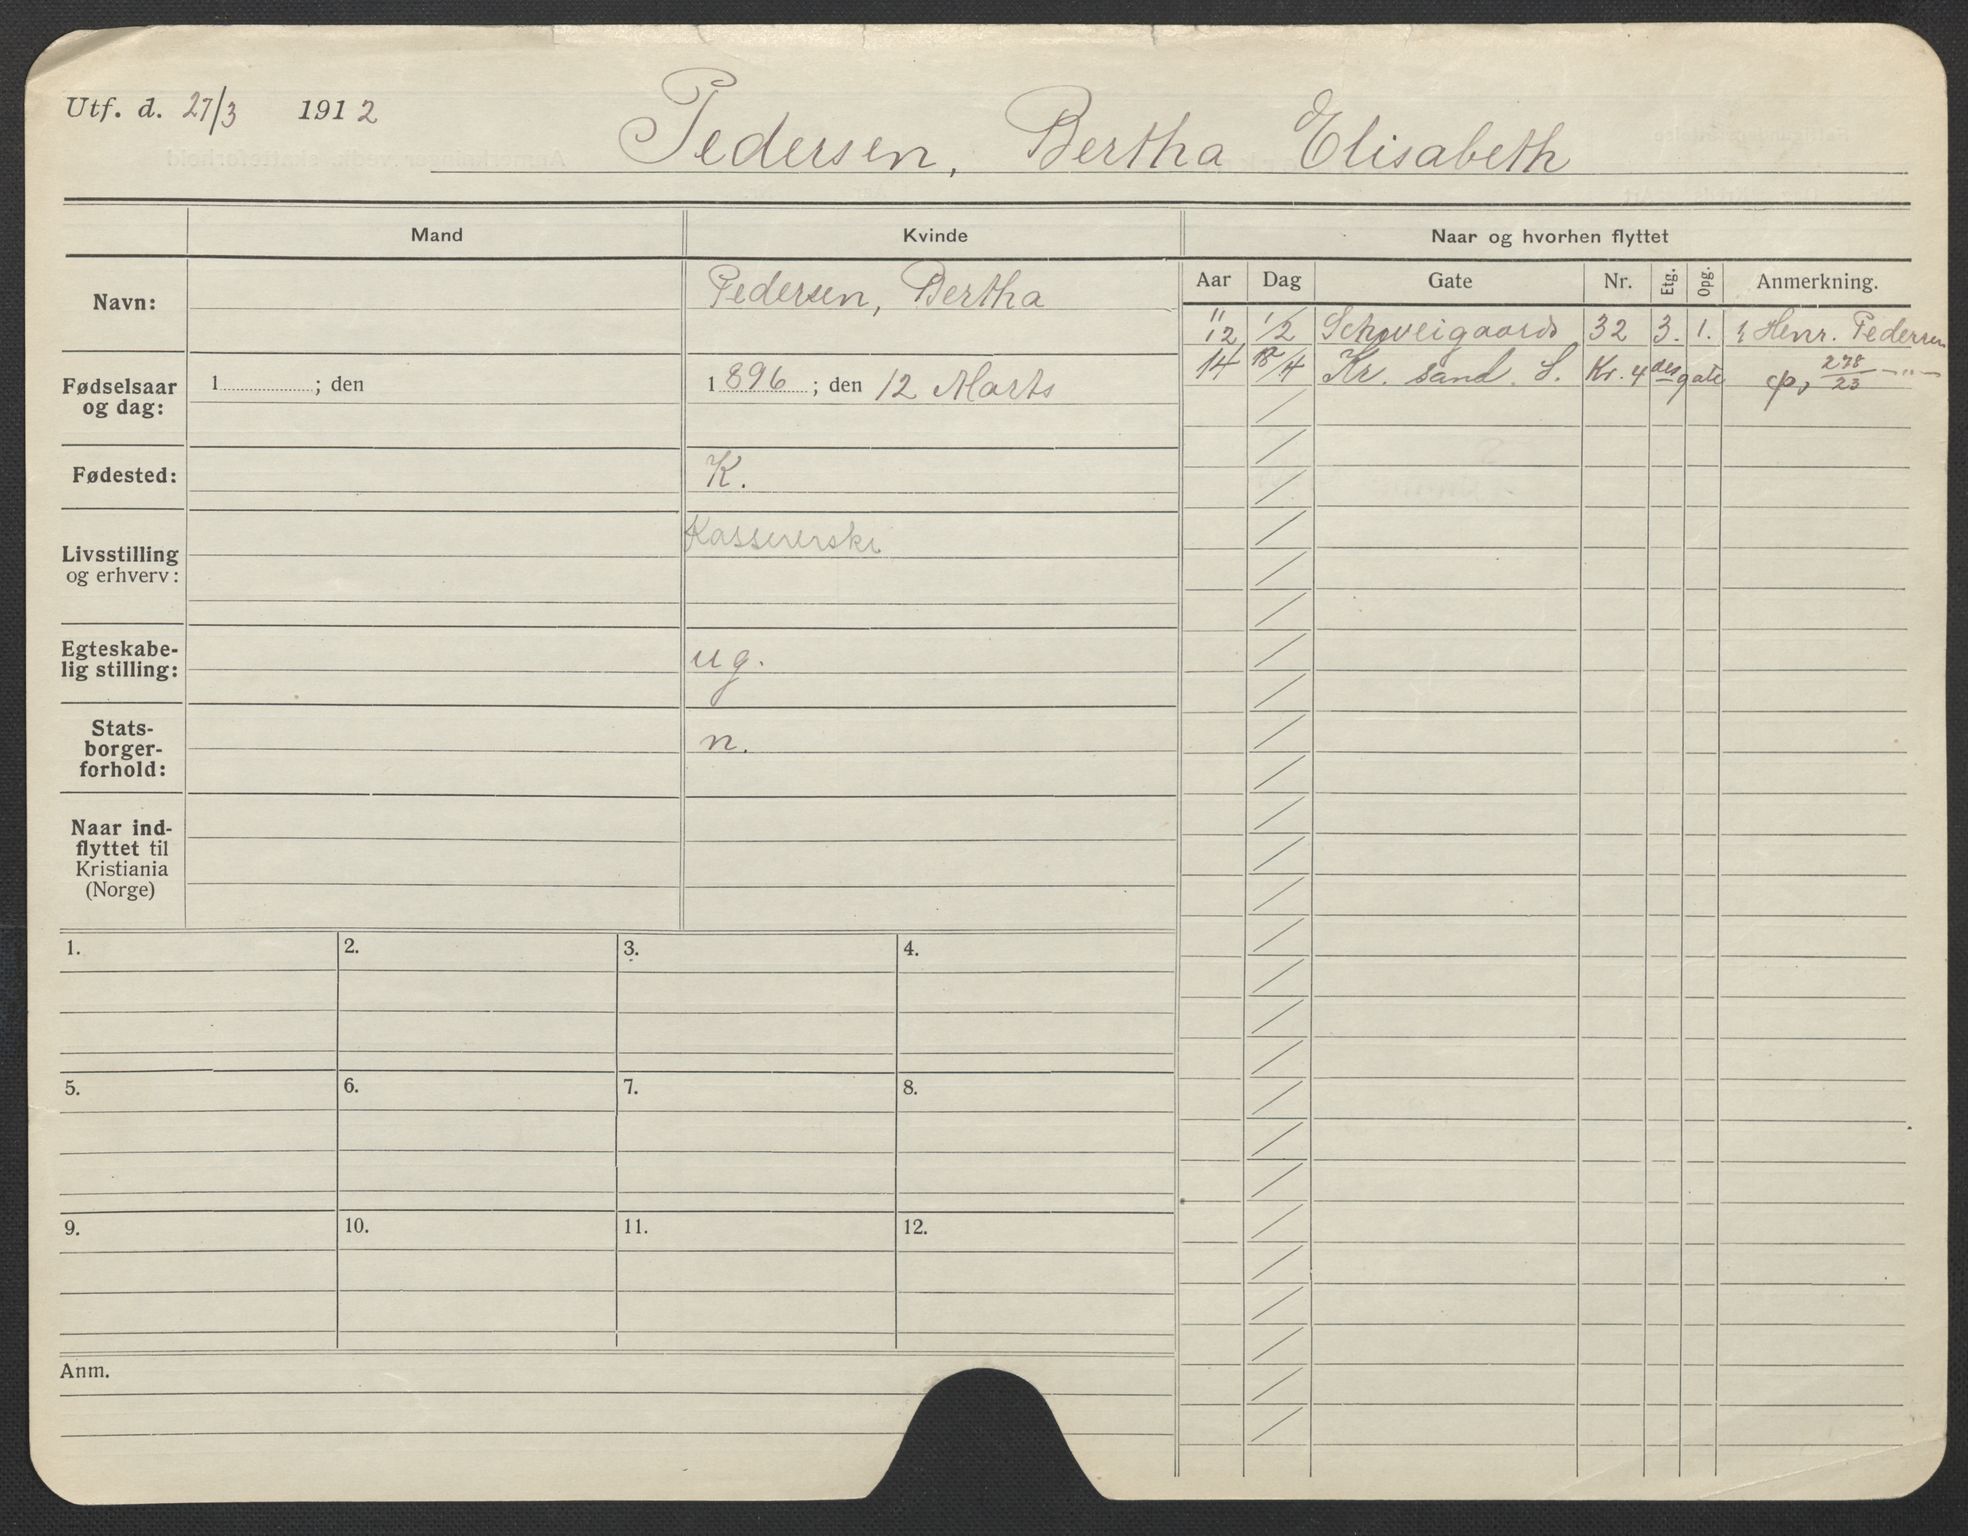 Utf. d. 27/3 1912
Pedersen, Bertha Elisabeth
Mand
Kvinde
Naar og hvorhen flyttet
Navn:
Pedersen, Bertha
Fødselsaar
og dag:
1 ; den
1896 ; den 12 Marts
Fødested:
K.
Livsstilling
og erhverv:
Kassererske
Egteskabe-
lig stilling:
ug.
Stats-
borger-
forhold:
n.
Naar ind-
flyttet til
Kristiania
(Norge)
Aar Dag Gate Nr. Etg. Opg. Anmerkning.
"
12 1/2 Schweigaards 32 3. 1. Henr. Pedersen
14 18/4 Kr. sand. S. Kr. 4 des gate 278/23 — " —
1. 2. 3. 4.
5. 6. 7. 8.
9. 10. 11. 12.
Anm.